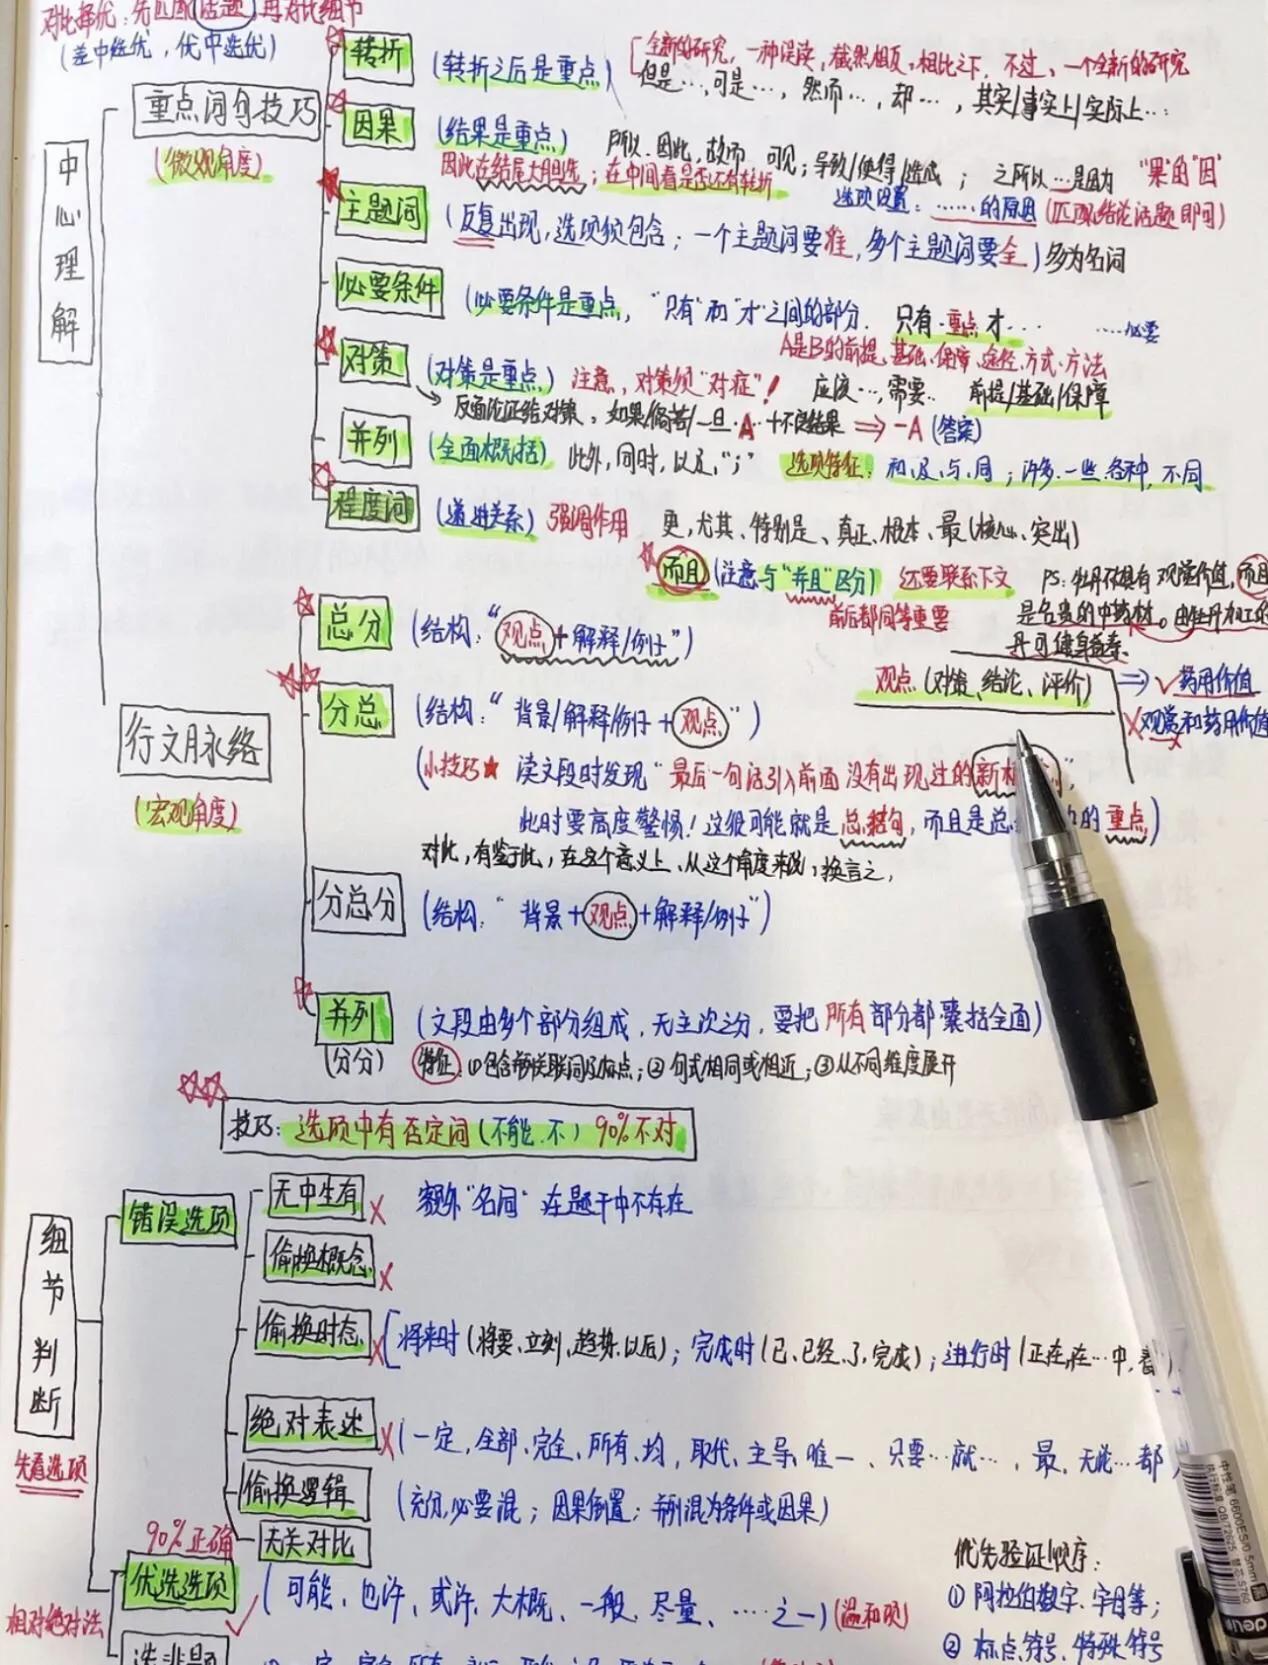 对比择优：先匹配话题 再对比细节
(差中选优，优中选优)
中心理解
重点词句技巧
(微观角度)
转折
(转折之后是重点)
全新的研究，一种误读，截然相反，相比之下，不过，一个全新的研究
但是…，可是…，然而…，却…，其实/事实上/实际上…
因果
(结果是重点) 所以、因此，故而，可见；导致/使得/造成；之所以…是因为 "果"的"因"
因此在结尾大胆选；在中间看是否还有转折
选项设置：……的原因(匹配结论话题即可)
主题词
(反复出现，选项须包含；一个主题词要准，多个主题词要全) 多为名词
必要条件
(必要条件是重点，"只有"和"才"之间的部分. 只有…重点才… ……必要
A是B的前提、基础、保障、途径、方式、方法
对策
(对策是重点) 注意，对策须"对症"！ 应该…，需要… 前提/基础/保障
反面论证给对策，如果/倘若/一旦…A…+不良结果 ⇒ -A (答案)
并列
(全面概括) 此外，同时，以及，"；" 选项特征：和、及、与、同；许多、一些、各种，不同
程度词
(递进关系) 强调作用 更，尤其、特别是、真正、根本、最(核心、突出)
而且 (注意与"并且"区分) 还要联系下文
前后都同等重要
PS：牡丹不仅具有观赏价值，而且
是名贵的中药材。由牡丹加工的
丹可
观点(对策、结论、评价)
⇒ √ 药用价值
X 观赏和药用价值
行文脉络
(宏观角度)
总分
(结构："观点+解释/例子")
分总
(结构："背景/解释/例子+观点")
(小技巧★ 读文段时发现"最后一句话引入前面没有出现过的新
此时要高度警惕！这很可能就是总结句，而且是总 的重点)
对此，有鉴于此，在这个意义上、从这个角度来说，换言之，
分总分
(结构："背景+观点+解释/例子")
并列
(分分)
(文段由多个部分组成，无主次之分，要把所有部分都囊括全面)
特征：①包含并列关联词及标点；②句式相同或相近；③从不同维度展开
技巧：选项中有否定词(不能、不) 90%不对
细节判断
先看选项
错误选项
无中生有 X 额外"名词"在题干中不存在
偷换概念 X
偷换时态 X 将来时(将要、立刻、趋势、以后)；完成时(已、已经、了、完成)；进行时(正在、在…中，着)
绝对表达 X (一定，全部、完全、所有、均，取代、主导、唯一、只要…就…，最、无论…都
偷换逻辑 (充分、必要混；因果倒置；并列混为条件或因果)
无关对比
90%正确
优选选项
(可能、也许、或许、大概、一般、尽量、……之一) (温和项)
相对绝对法
选非题
优先验证顺序：
① 阿拉伯数字、字母等；
② 标点符号、特殊符号
中性笔 6600ES/0.5mm
deli